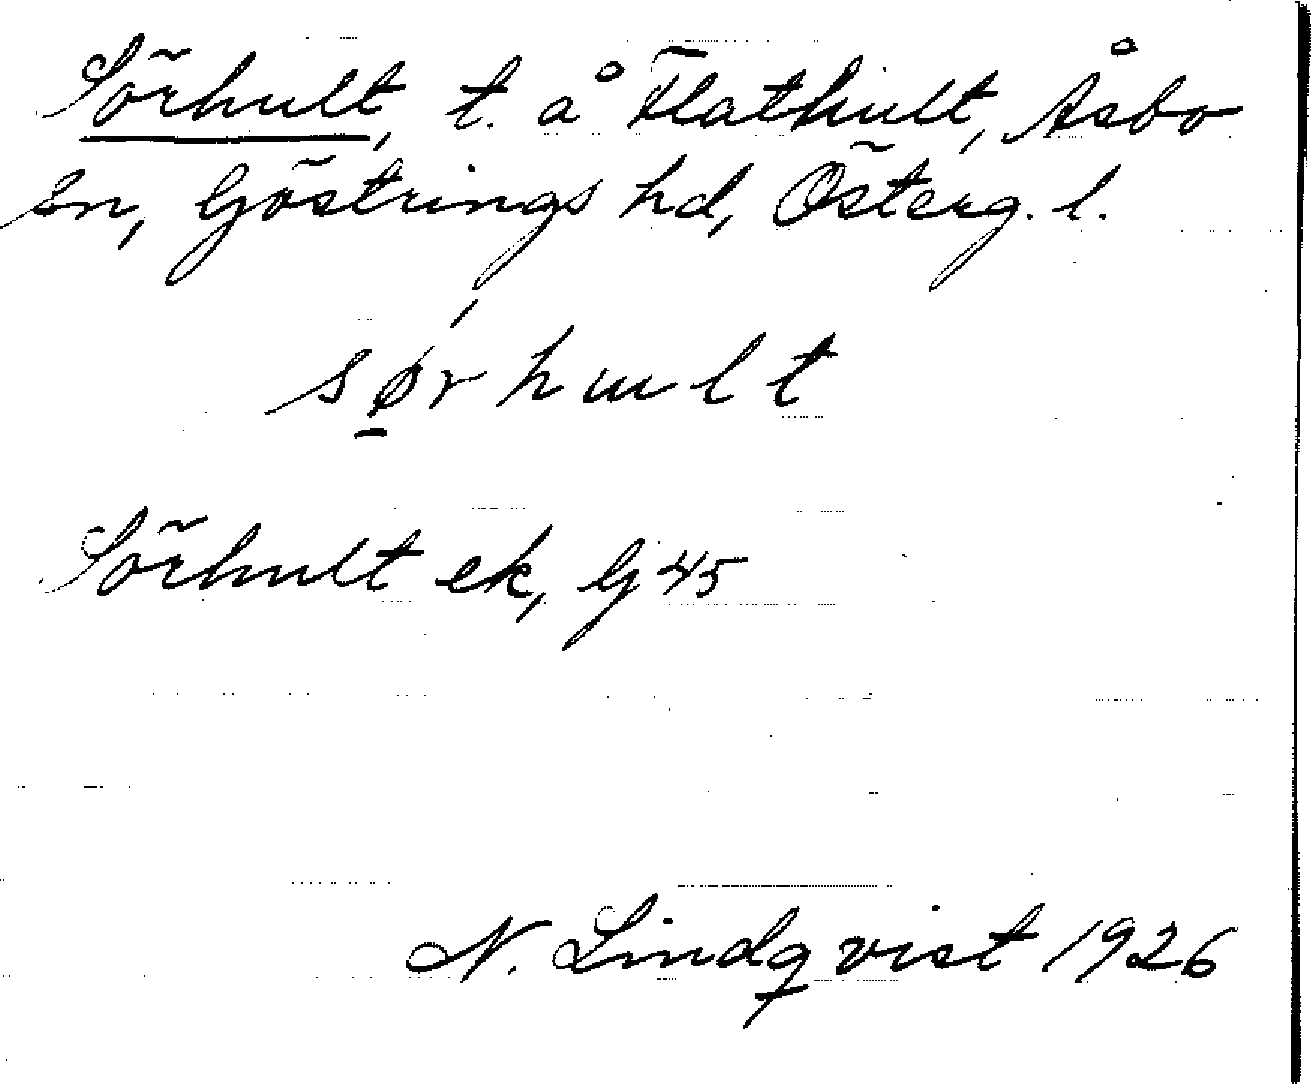 Sörhult, t. å Flathult, Åsbo
sn, Göstrings hd, Österg. l.
sǿ̱rhult
Sörhult ek, Gj 45
N. Lindqvist 1926